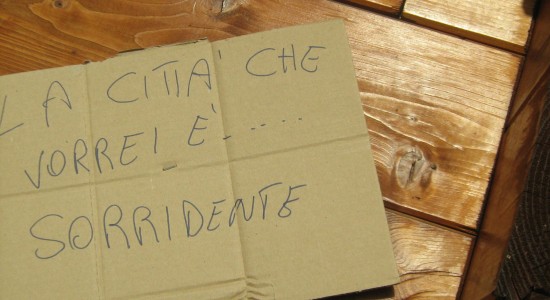 LA CITTA' CHE
VORREI E'.....
SORRIDENTE